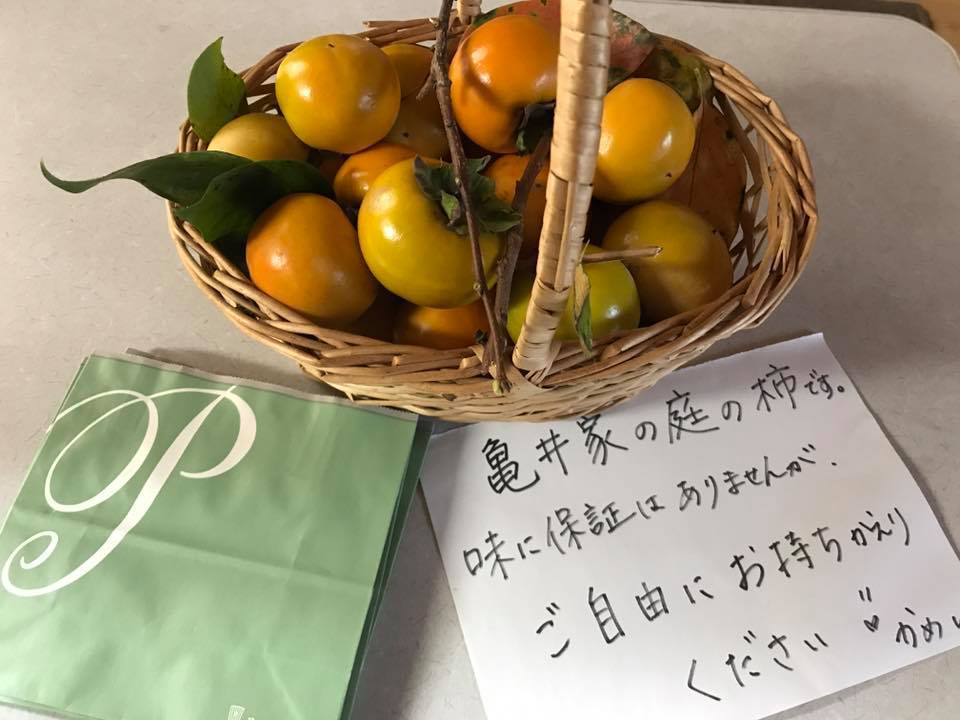 P
亀井家の庭の柿です。
味に保証はありませんが、
ご自由にお持ちかえり
ください
かめい